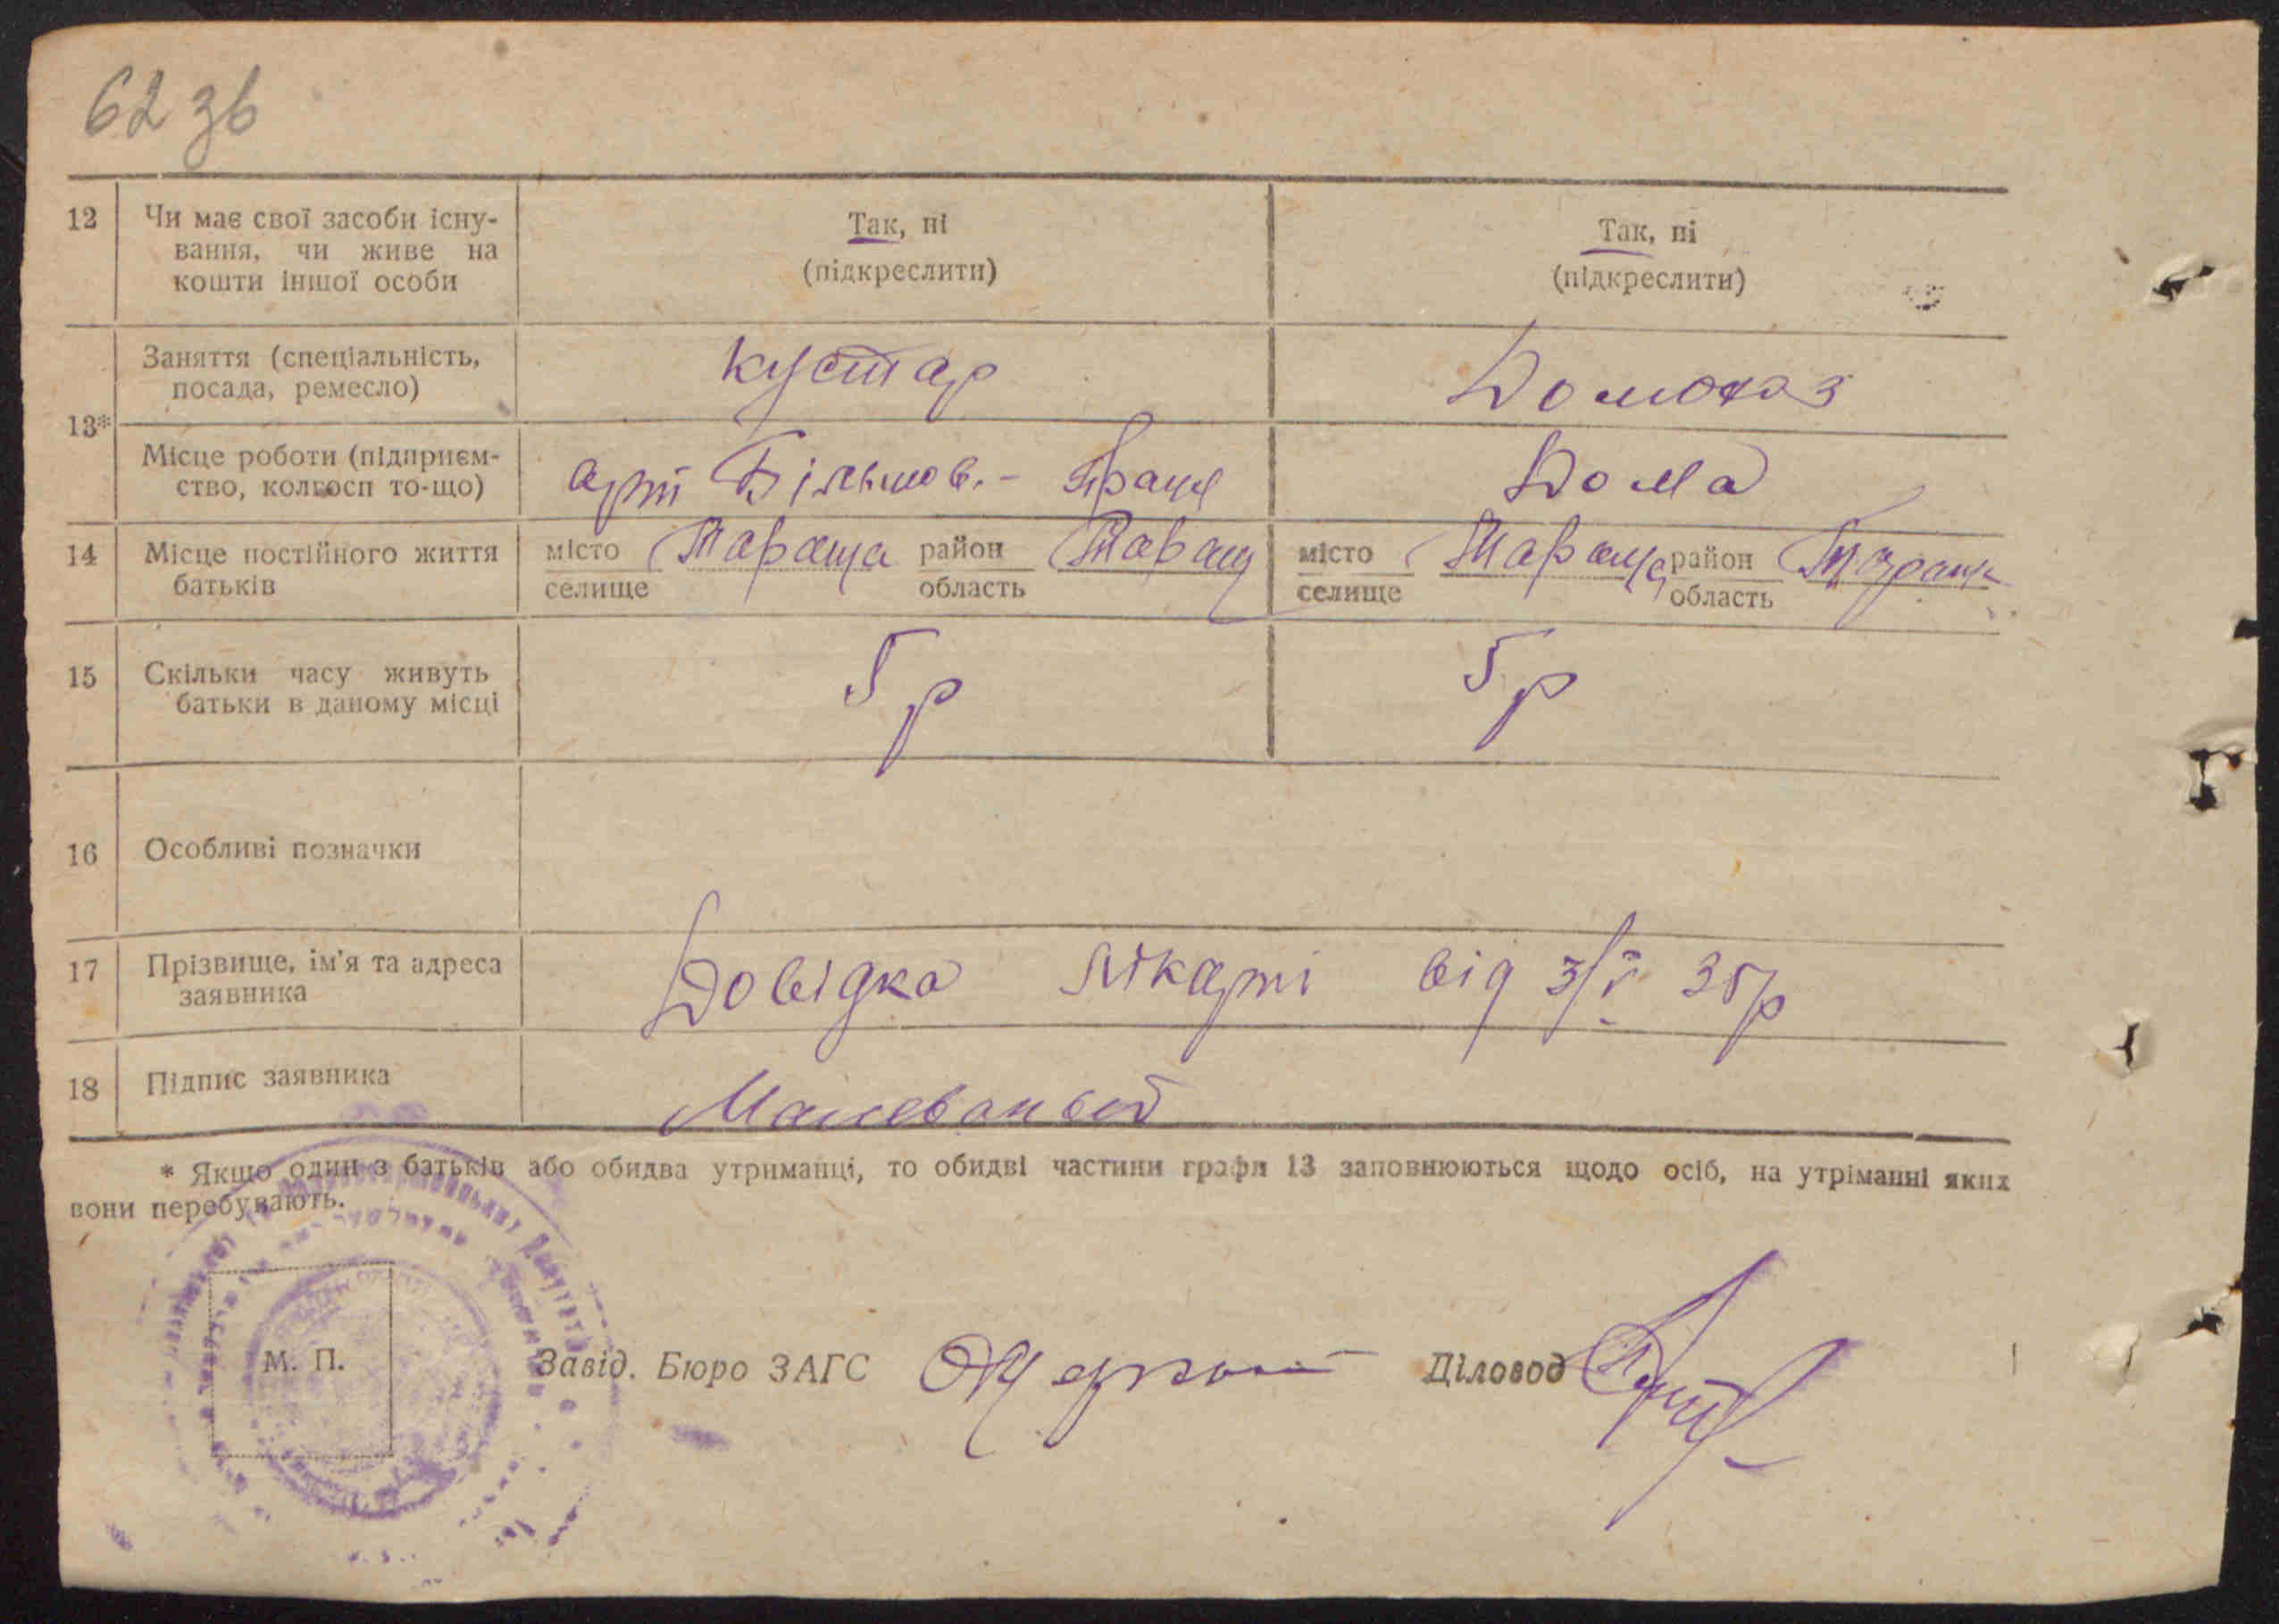 62 зв
12 Чи має свої засоби існу- Так, ні Так, ні
вання, чи живе на (підкреслити) (підкреслити)
кошти іншої особи
13* Заняття (спеціальність, кустар Домогаз
посада, ремесло)
Місце роботи (підприєм- арт Більшов.- Праця Дома
ство, колгосп то-що)
14 Місце постійного життя місто Тараща район Таращ місто Тараща район Таращ
батьків селище область селище область
15 Скільки часу живуть 5 р 5 р
батьки в даному місці
16 Особливі позначки
17 Прізвище, ім'я та адреса Довідка лікарні від 3/V 35р
заявника
18 Підпис заявника
* Якщо один з батьків або обидва утриманці, то обидві частини графи 13 заповнюються щодо осіб, на утріманні яких
вони перебувають.
М. П. Завід. Бюро ЗАГС Діловод